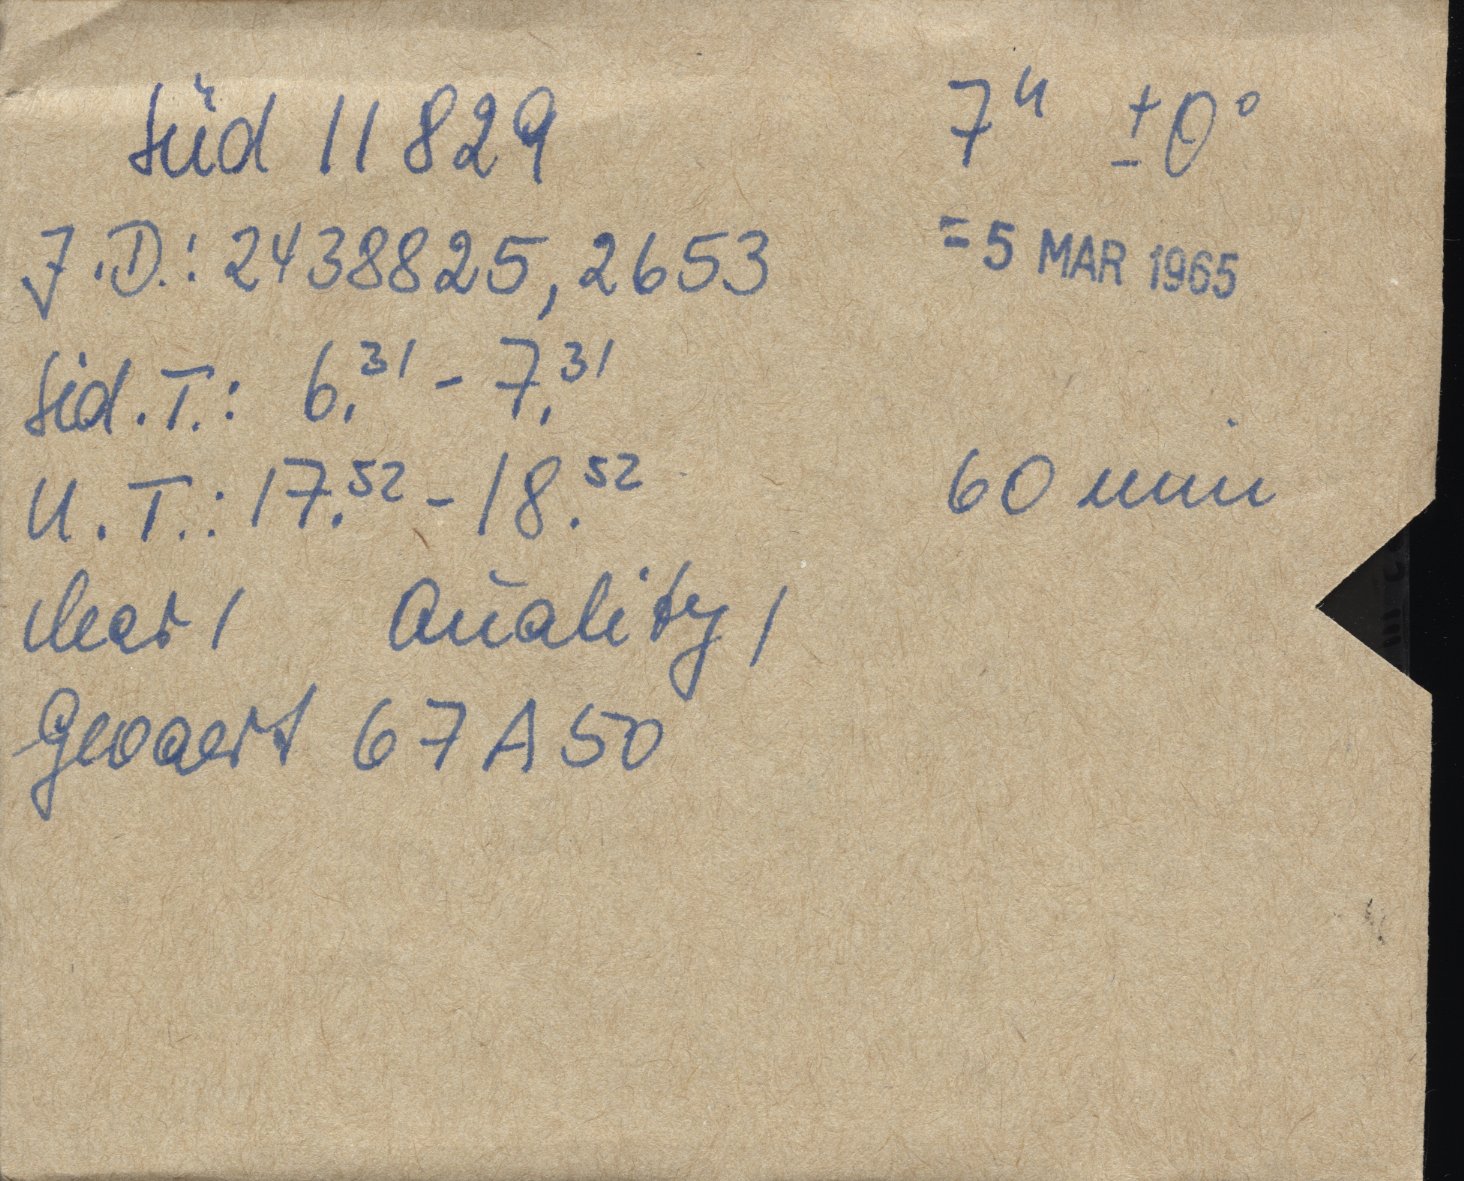 Süd 11829 7ʰ ±0°
J.D.: 2438825,2653 =5 MAR 1965
Sid.T.: 6.³¹ - 7.³¹
U.T.: 17.⁵² - 18.⁵² 60 min
clear 1 Quality 1
Gevaert 67A50